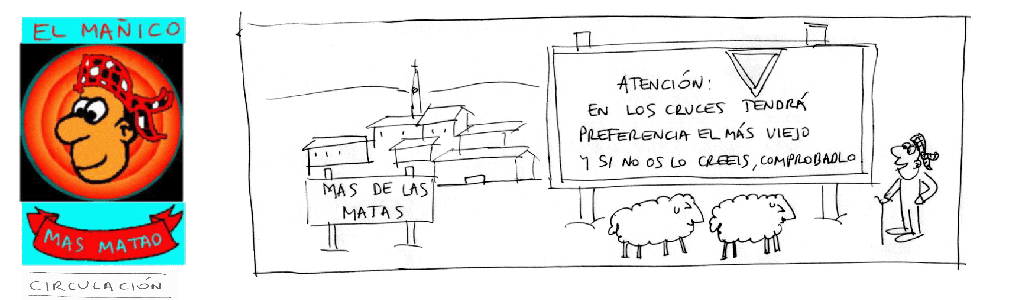 EL MAÑICO
MAS MATAO
CIRCULACIÓN
MAS DE LAS
MATAS
ATENCIÓN:
EN LOS CRUCES TENDRÁ
PREFERENCIA EL MÁS VIEJO
Y SI NO OS LO CREEIS, COMPROBADLO